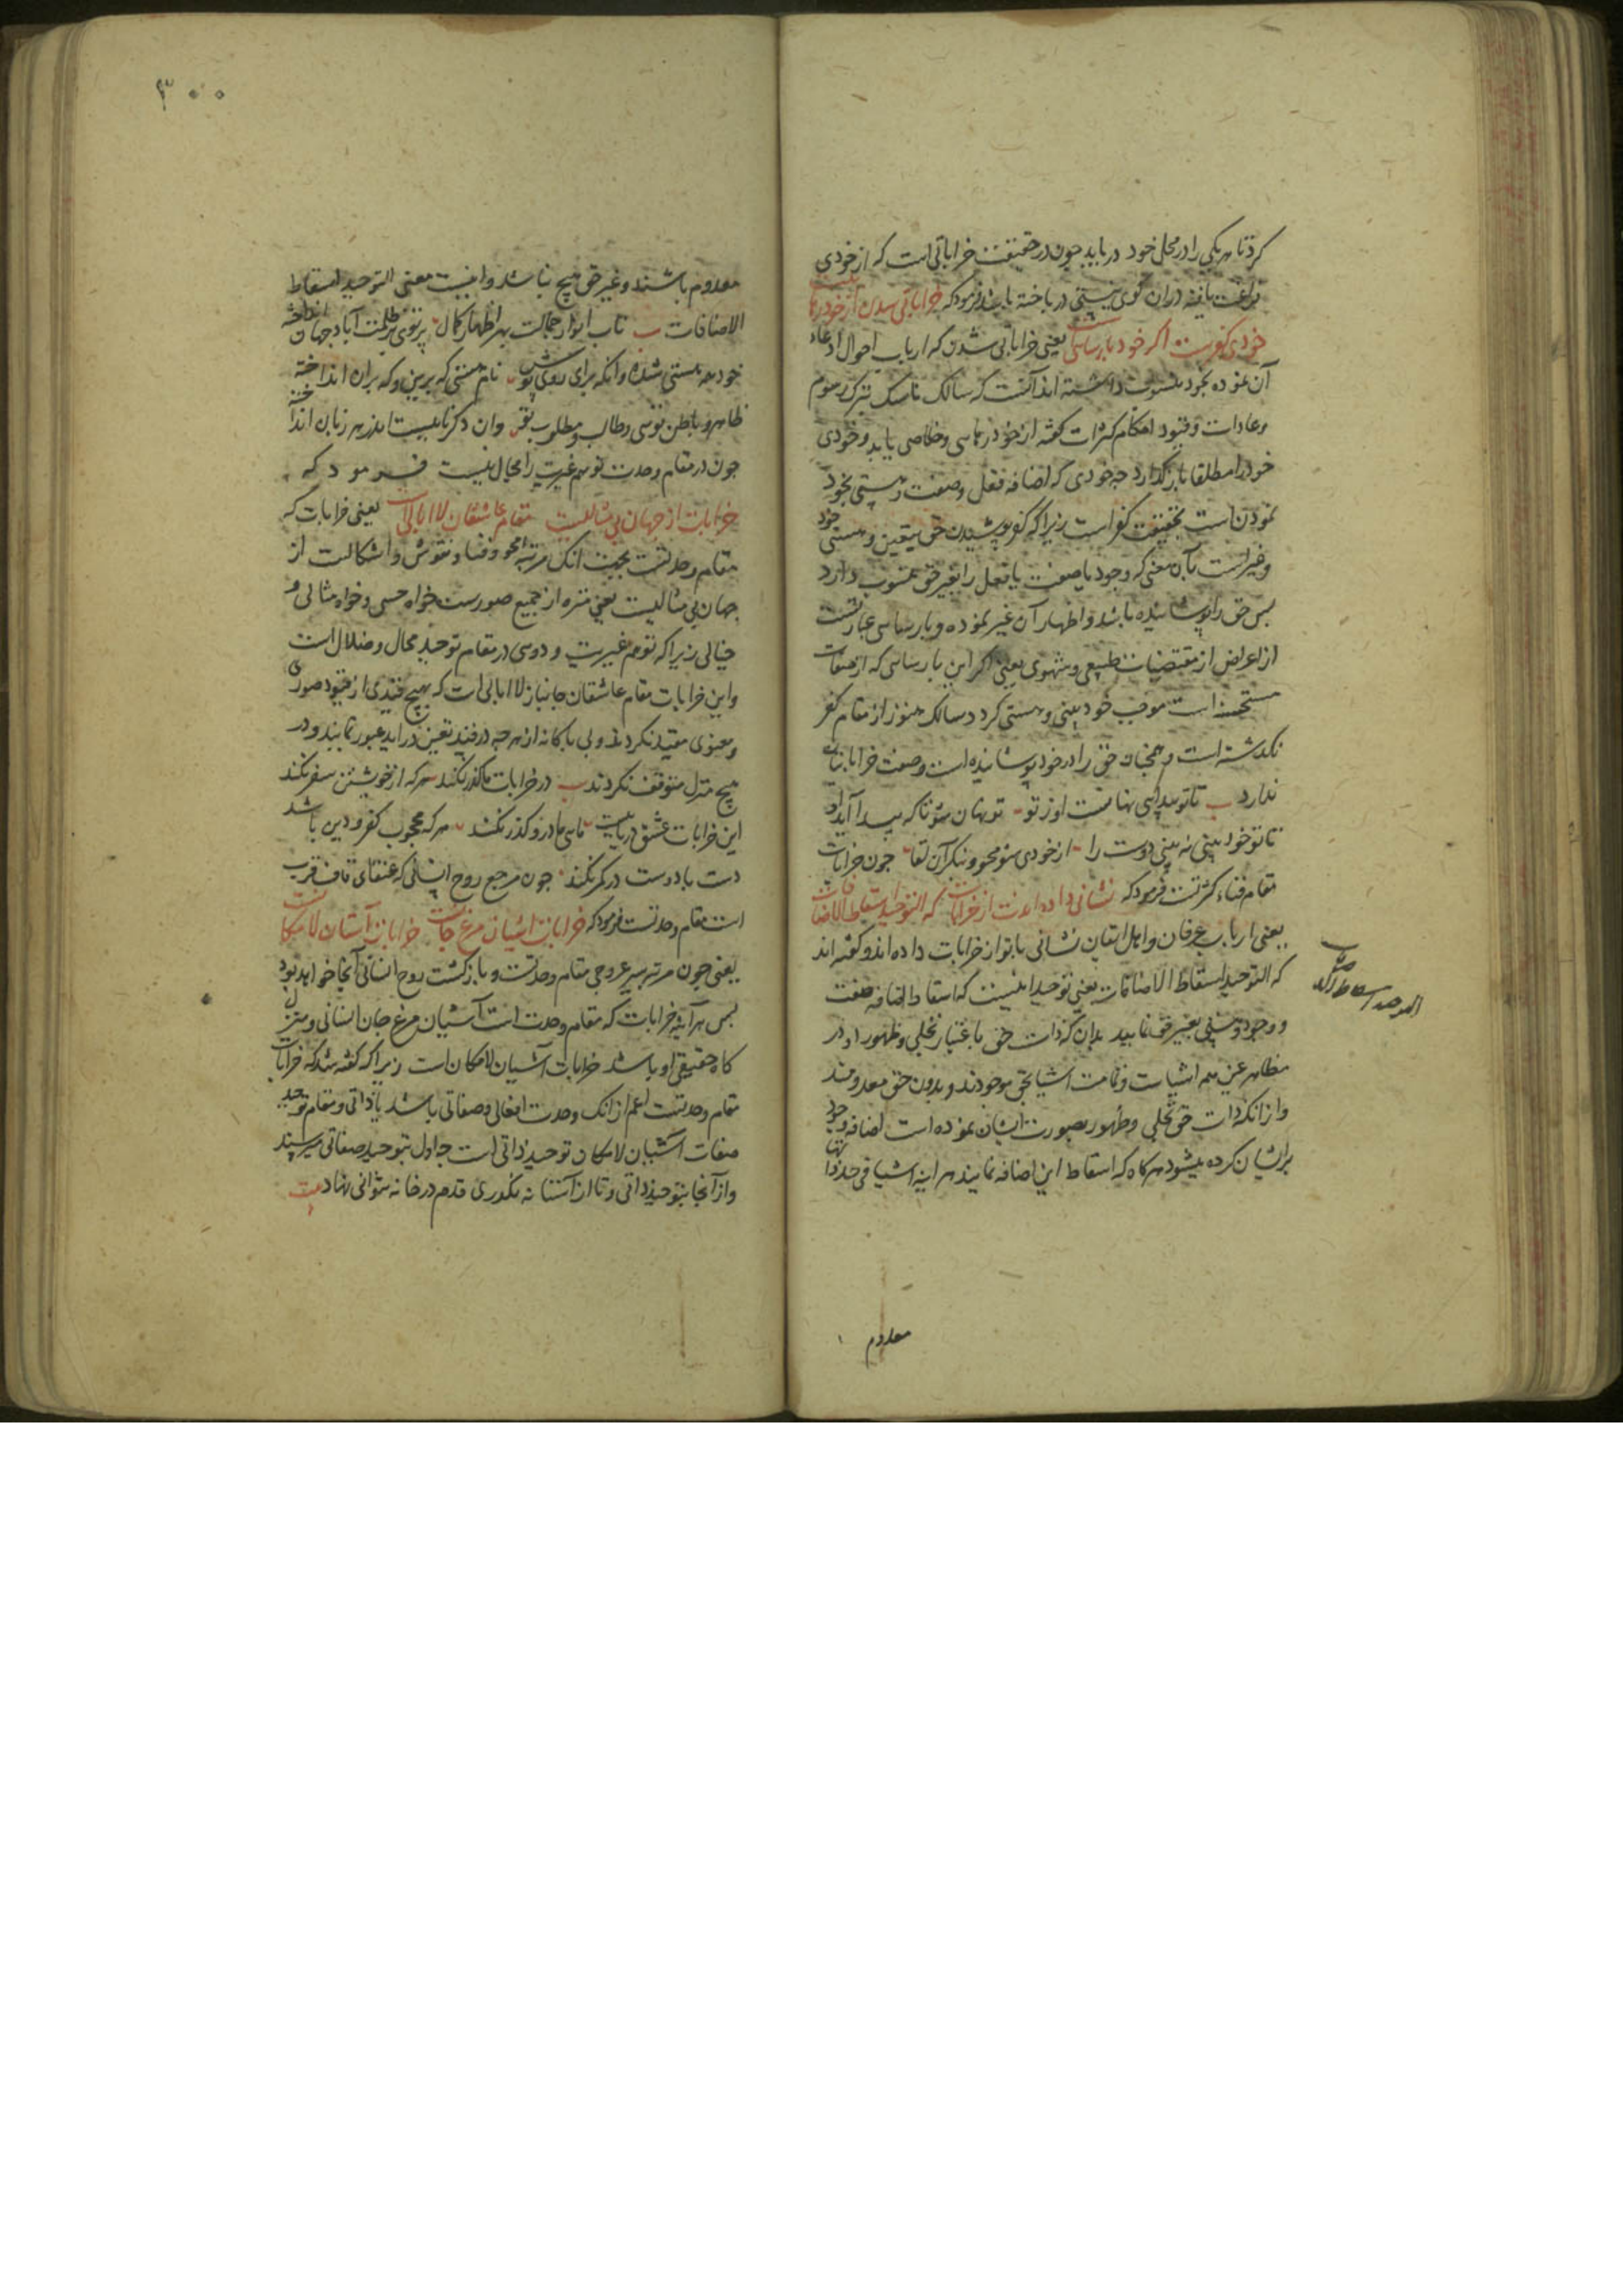 کردتا هر یکی را در محل خود دریابد چون در حقیقت خراباتی است که از خودی
فراغت یافته دران کوی نیستی در باخته باشد فرمود که خراباتی شدن از خود رهاییست
خودی کفرست اگر خود پارساییست یعنی خراباتی شدن که ارباب احوال ادعاء
آن نموده بخود منسوب داشته اند آنست که سالک ناسک بترک رسوم
وعادات وقیود احکام کثرات گفته از خود رهایی وخلاصی یابد وخودی
خود را مطلقا بازگذارد چه خودی که اضافه فعل وصفت وهستی بخود
نمودن است بحقیقت کفر است زیرا که کفر پوشیدن حق بتعین وهستی خود
وغیر است بآن معنی که وجود یا صفت یا فعل را بغیر حق منسوب دارد
پس حق را پوشانیده باشد واظهار آن غیر نموده وپارسایی عبارتست
از اعراض از مقتضیات طبیعی وشهوی یعنی اگر این پارسایی که از صفات
مستحسنه است موجب خود بینی وهستی گردد سالک هنوز از مقام کفر
نگذشته است وهمچنان حق را در خود پوشانیده است وصفت خراباتیان
ندارد تا تو پیدایی نهانست اوز تو تو نهان شو تا که پیدا آید او
تا تو خود بینی نه بینی دوست را از خودی شو محو وبنگر آن لقا چون خرابات
مقام فناء کثرتست فرمود که نشانی داده اندت از خرابات که التوحید اسقاط الاضافات
یعنی ارباب عرفان واهل ایقان نشانی با تو از خرابات داده اند وگفته اند
که التوحید اسقاط الاضافات یعنی توحید اینست که اسقاط اضافه صفت
ووجود وهستی بغیر حق نمایید بدان که ذات حق باعتبار تجلی وظهور او در
مظاهر عین همه اشیاست وتمامت اشیا بحق موجودند وبدون حق معدومند
وازانکه ذات حق تجلی وظهور بصورت ایشان نموده است اضافه وجود
برایشان کرده میشود هرگاه که اسقاط این اضافه نمایند هر اینه اشیا فی حد ذاتها
معدوم
٣٠٠
معدوم باشند وغیر حق هیچ نباشد واینست معنی التوحید اسقاط
الاضافات تاب انوار جمالت بهر اظهار کمال پرتوی بر ظلمت آباد جهان انداخته
خود همه هستی شده وانگه برای روی پوش نام هستی گه برین وگه بران انداخته
ظاهر وباطن تویی وطالب ومطلوب تو وان دگر نامیست اندر هر زبان انداخته
چون در مقام وحدت توهم غیریت را مجال نیست فرمود که
خرابات از جهان بی مثالیست مقام عاشقان لاابالیست یعنی خرابات که
مقام وحدتست بجهت انک مرتبه محو وفناء نقوش واشکالست از
جهان بی مثالیست یعنی منزه از جمیع صورست خواه حسی وخواه مثالی و
خیالی زیرا که توهم غیریت ودویی در مقام توحید محال وضلال است
واین خرابات مقام عاشقان جانباز لاابالی است که بهیچ قیدی از قیود صوری
ومعنوی مقید نکردند وبی باکانه از هرچه در قید تعین دراید عبور نمایند ودر
هیچ منزل متوقف نکردند در خرابات ما گذر نکند هرکه از خویشتن سفر نکند
این خرابات عشق دریاییست ماهی ما درو گذر نکند هرکه محجوب کفر ودین باشد
دست با دوست در کمر نکند چون مرجع روح انسانی که عنقای قاف قرب
است مقام وحدتست فرمود که خرابات آشیان مرغ جانست خرابات آستان لامکانست
یعنی چون مرتبه سیر عروجی مقام وحدتست وبازگشت روح انسانی آنجا خواهد بود
پس هرآینه خرابات که مقام وحدت است آشیان مرغ جان انسانی ومنزل
گاه حقیقی او باشد خرابات آشیان لامکان است زیرا که گفته شد که خرابات
مقام وحدتست اعم ازانک وحدت افعالی وصفاتی باشد یا ذاتی ومقام توحید
صفات آشیان لامکان توحید ذاتی است چه اول بتوحید صفاتی میرسند
واز آنجا بتوحید ذاتی وتا از آستانه نگذری قدم در خانه نتوانی نهاد بیت